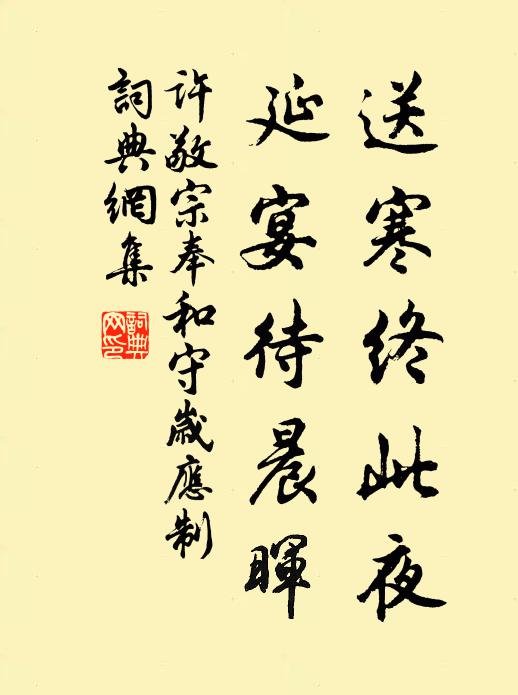 送寒終此夜
延宴待晨暉
許敬宗奉和守歲應制
詞典網集
詞典網印